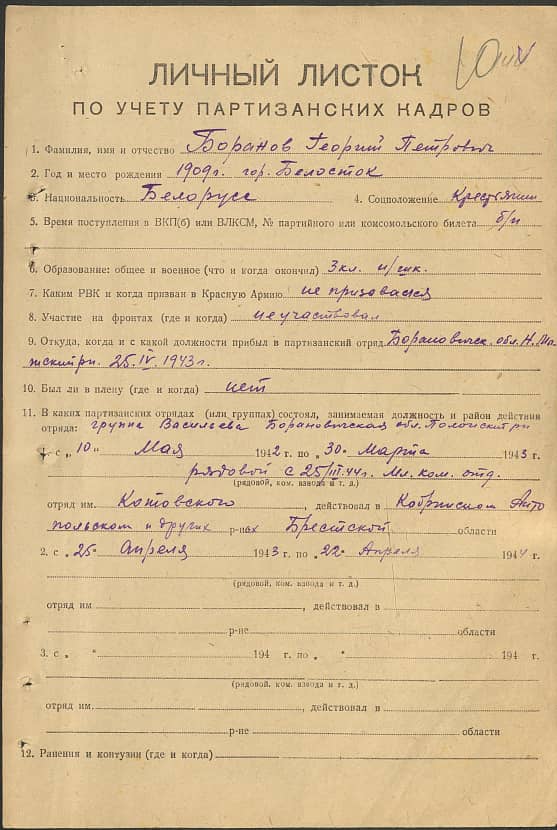 ЛИЧНЫЙ ЛИСТОК
ПО УЧЕТУ ПАРТИЗАНСКИХ КАДРОВ
1. Фамилия, имя и отчество Боранов Георгий Петрович
2. Год и место рождения 1909 г. гор. Белосток
3. Национальность Белорусс 4. Соцположение Крестьянин
5. Время поступления в ВКП(б) или ВЛКСМ, № партийного или комсомольского билета б/п
6. Образование: общее и военное (что и когда окончил) 3 кл. н/шк.
7. Каким РВК и когда призван в Красную Армию не призовался
8. Участие на фронтах (где и когда) не участвовал
9. Откуда, когда и с какой должности прибыл в партизанский отряд Борановичск. обл. Н.
25.IV.1943 г.
10. Был ли в плену (где и когда) нет
11. В каких партизанских отрядах (или группах) состоял, занимаемая должность и район действия
отряда: группа Васильева Борановичская обл.
1. с „10" Мая 1942 г. по „30" Марта 1943 г.
рядовой с 25/III.44 г. Мл. ком. отд.
(рядовой, ком. взвода и т. д.)
отряд им. Котовского, действовал в Кобринском Анто
польском и других р-нах Брестской области
2. с „25" Апреля 1943 г. по „22" Апреля 1944 г.
(рядовой, ком. взвода и т. д.)
отряд им., действовал в
р-не области
3. с „ " 194 г. по „ " 194 г.
(рядовой, ком. взвода и т. д.)
отряд им., действовал в
р-не области
12. Ранения и контузии (где и когда)